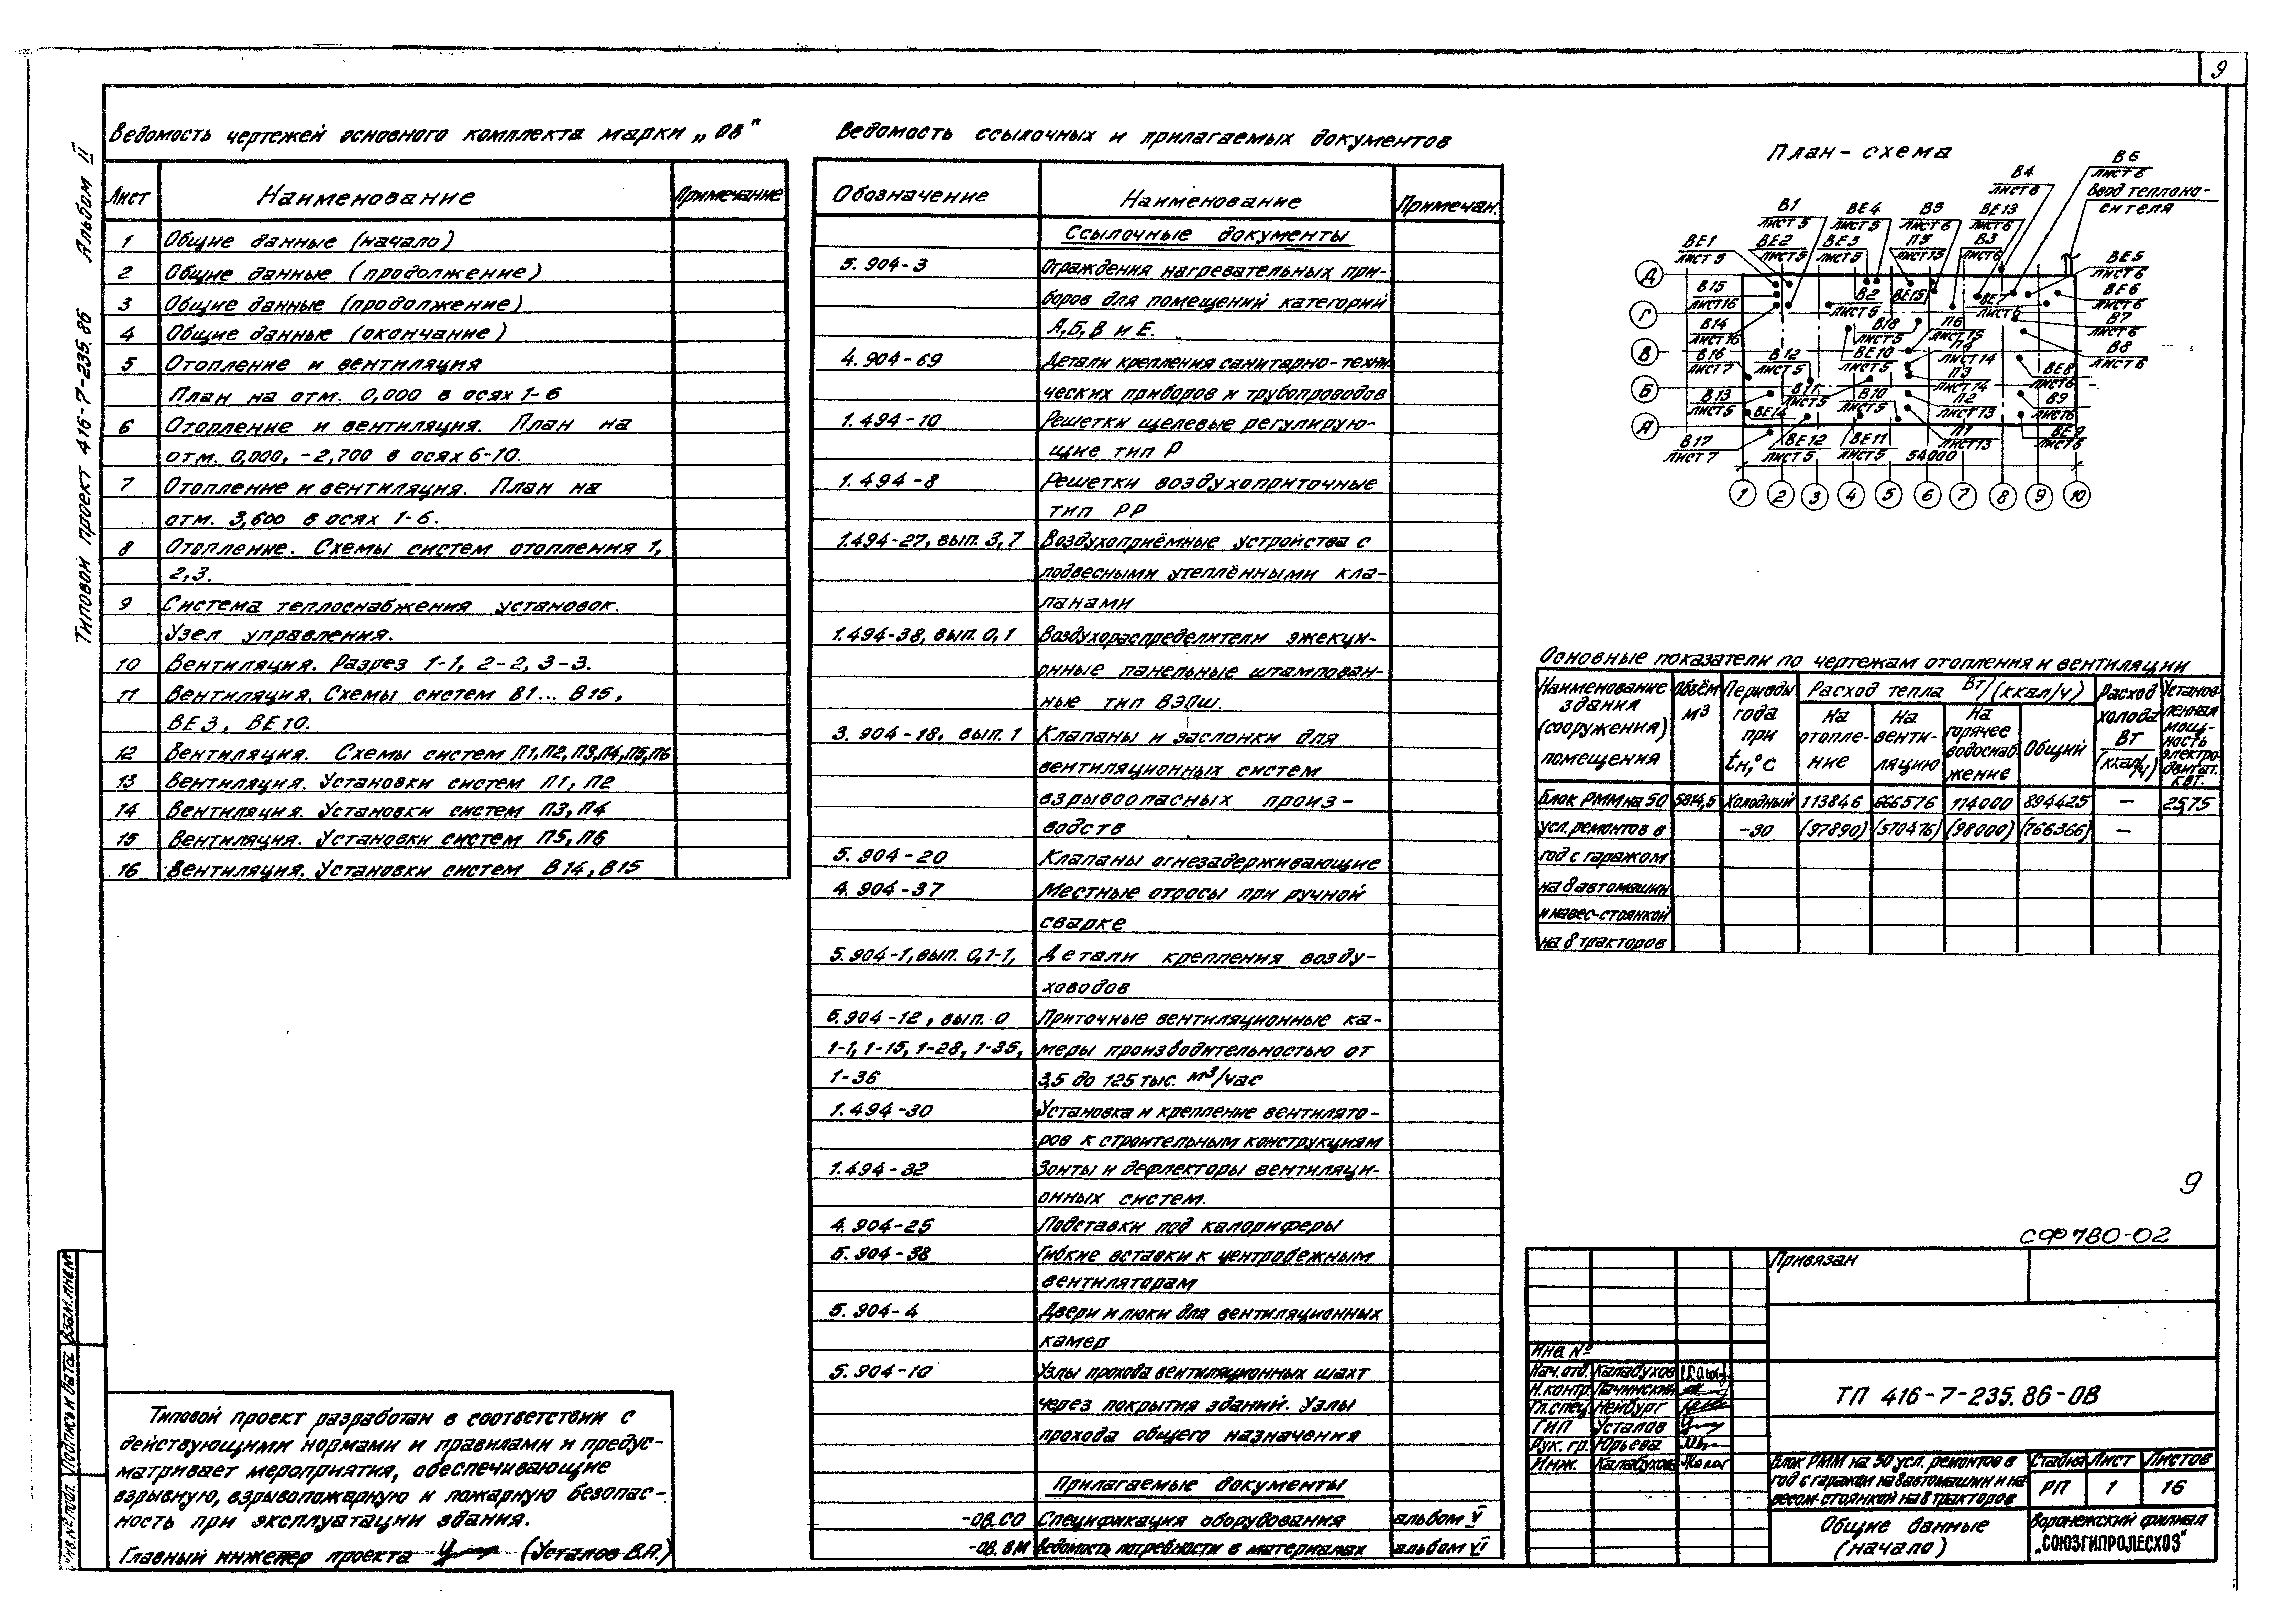 9
Типовой проект 416-7-235.86 Альбом II
Ведомость чертежей основного комплекта марки „ОВ"
Лист Наименование Примечание
1 Общие данные (начало)
2 Общие данные (продолжение)
3 Общие данные (продолжение)
4 Общие данные (окончание)
5 Отопление и вентиляция
План на отм. 0,000 в осях 1-6
6 Отопление и вентиляция. План на
отм. 0,000, -2,700 в осях 6-10.
7 Отопление и вентиляция. План на
отм. 3,600 в осях 1-6.
8 Отопление. Схемы систем отопления 1,
2,3.
9 Система теплоснабжения установок.
Узел управления.
10 Вентиляция. Разрез 1-1, 2-2, 3-3.
11 Вентиляция. Схемы систем В1... В15,
ВЕ3, ВЕ10.
12 Вентиляция. Схемы систем П1,П2,П3,П4,П5,П6
13 Вентиляция. Установки систем П1, П2
14 Вентиляция. Установки систем П3, П4
15 Вентиляция. Установки систем П5, П6
16 Вентиляция. Установки систем В14, В15
Типовой проект разработан в соответствии с
действующими нормами и правилами и предус-
матривает мероприятия, обеспечивающие
взрывную, взрывопожарную и пожарную безопас-
ность при эксплуатации здания.
Главный инженер проекта (Усталов В.П.)
Инв.№ подл. Подпись и дата Взам.инв.№
Ведомость ссылочных и прилагаемых документов
Обозначение Наименование Примечан.
Ссылочные документы
5.904-3 Ограждения нагревательных при-
боров для помещений категорий
А,Б,В и Е.
4.904-69 Детали крепления санитарно-техни-
ческих приборов и трубопроводов
1.494-10 Решетки щелевые регулирую-
щие тип Р
1.494-8 Решетки воздухоприточные
тип РР
1.494-27, вып. 3,7 Воздухоприёмные устройства с
подвесными утеплёнными кла-
панами
1.494-38, вып. 0,1 Воздухораспределители эжекци-
онные панельные штампован-
ные тип ВЭПш.
3.904-18, вып. 1 Клапаны и заслонки для
вентиляционных систем
взрывоопасных произ-
водств
5.904-20 Клапаны огнезадерживающие
4.904-37 Местные отсосы при ручной
сварке
5.904-1, вып. 0,1-1, Детали крепления возду-
ховодов
5.904-12, вып. 0 Приточные вентиляционные ка-
1-1, 1-15, 1-28, 1-35, меры производительностью от
1-36 3,5 до 125 тыс. м³/час
1.494-30 Установка и крепление вентилято-
ров к строительным конструкциям
1.494-32 Зонты и дефлекторы вентиляци-
онных систем.
4.904-25 Подставки под калориферы
5.904-38 Гибкие вставки к центробежным
вентиляторам
5.904-4 Двери и люки для вентиляционных
камер
5.904-10 Узлы прохода вентиляционных шахт
через покрытия зданий. Узлы
прохода общего назначения
Прилагаемые документы
-ОВ.СО Спецификация оборудования альбом V
-ОВ.ВМ Ведомость потребности в материалах альбом VI
План-схема
В6
лист 6
В4
лист 6
Ввод теплоно-
сителя
В1
лист 5
ВЕ4
лист 5
В5
лист 6
ВЕ13
лист 6
ВЕ1
лист 5
ВЕ2
лист 5
ВЕ3
лист 5
П5
лист 15
В3
лист 6
ВЕ5
лист 6
В15
лист 16
В2
лист 5
ВЕ15
ВЕ7
лист 6
ВЕ6
лист 6
В14
лист 16
В18
лист 5
П6
лист 15
В7
лист 6
В16
лист 7
В12
лист 5
ВЕ10
лист 5
П4
лист 14
В8
лист 6
В13
лист 5
В11
лист 5
В10
лист 5
П3
лист 14
ВЕ8
лист 6
П2
лист 13
В9
лист 6
ВЕ14
В17
лист 7
ВЕ12
лист 5
ВЕ11
лист 5
П1
лист 13
ВЕ9
лист 6
54000
Д
Г
В
Б
А
1 2 3 4 5 6 7 8 9 10
Основные показатели по чертежам отопления и вентиляции
Наименование здания (сооружения) помещения
Объём м³
Периоды года при tн,°С
Расход тепла Вт/(ккал/ч)
На отопле-ние
На венти-ляцию
На горячее водоснаб-жение
Общий
Расход холода Вт (ккал/ч)
Установ-ленная мощ-ность электро-двигат. кВт.
Блок РММ на 50 5814,5 Холодный 113846 666576 114000 894425 — 25,75
усл. ремонтов в -30 (97890) (570476) (98000) (766366) —
год с гаражом
на 8 автомашин
и навес-стоянкой
на 8 тракторов
9
СФ 780-02
Привязан
Инв №
Нач.отд. Калабухов
Н.контр. Пачинский
Гл.спец. Нейбург
ГИП Усталов
Рук. гр. Юрьева
Инж. Калабухова
ТП 416-7-235.86-ОВ
Блок РММ на 50 усл. ремонтов в
год с гаражом на 8 автомашин и на-
весом-стоянкой на 8 тракторов
Стадия Лист Листов
РП 1 16
Общие данные
(начало)
Воронежский филиал
„СОЮЗГИПРОЛЕСХОЗ"